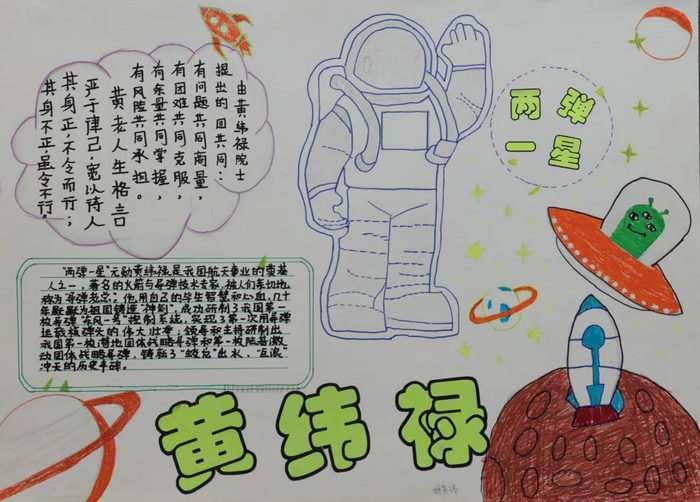 由黄纬禄院士
提出的"四共同":
有问题共同商量,
有困难共同克服,
有余量共同掌握,
有风险共同承担。
黄老人生格言
严于律己,宽以待人
其身正,不令而行;
其身不正,虽令不行。
两弹
一星
"两弹一星"元勋黄纬禄,是我国航天事业的奠基
人之一,著名的火箭与导弹技术专家,被人们亲切地
称为"导弹老总"。他用自己的毕生智慧和心血,几十
年默默为祖国铸造"神剑",成功研制了我国第一
枚导弹"东风一号"控制系统,实现了第一次用导弹
运载核弹头的伟大壮举;领导和主持研制出
我国第一枚潜地固体战略导弹和第一枚陆基机
动固体战略导弹,铸就了"蛟龙"出水、"巨浪"
冲天的历史丰碑。
黄纬禄